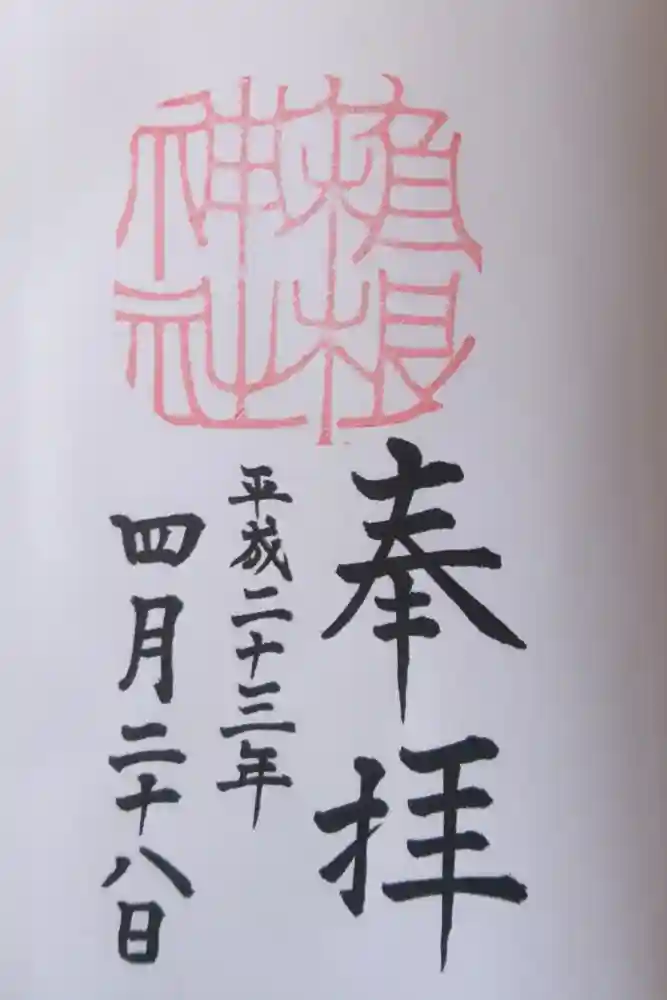 神社
奉拝
平成二十三年
四月二十八日